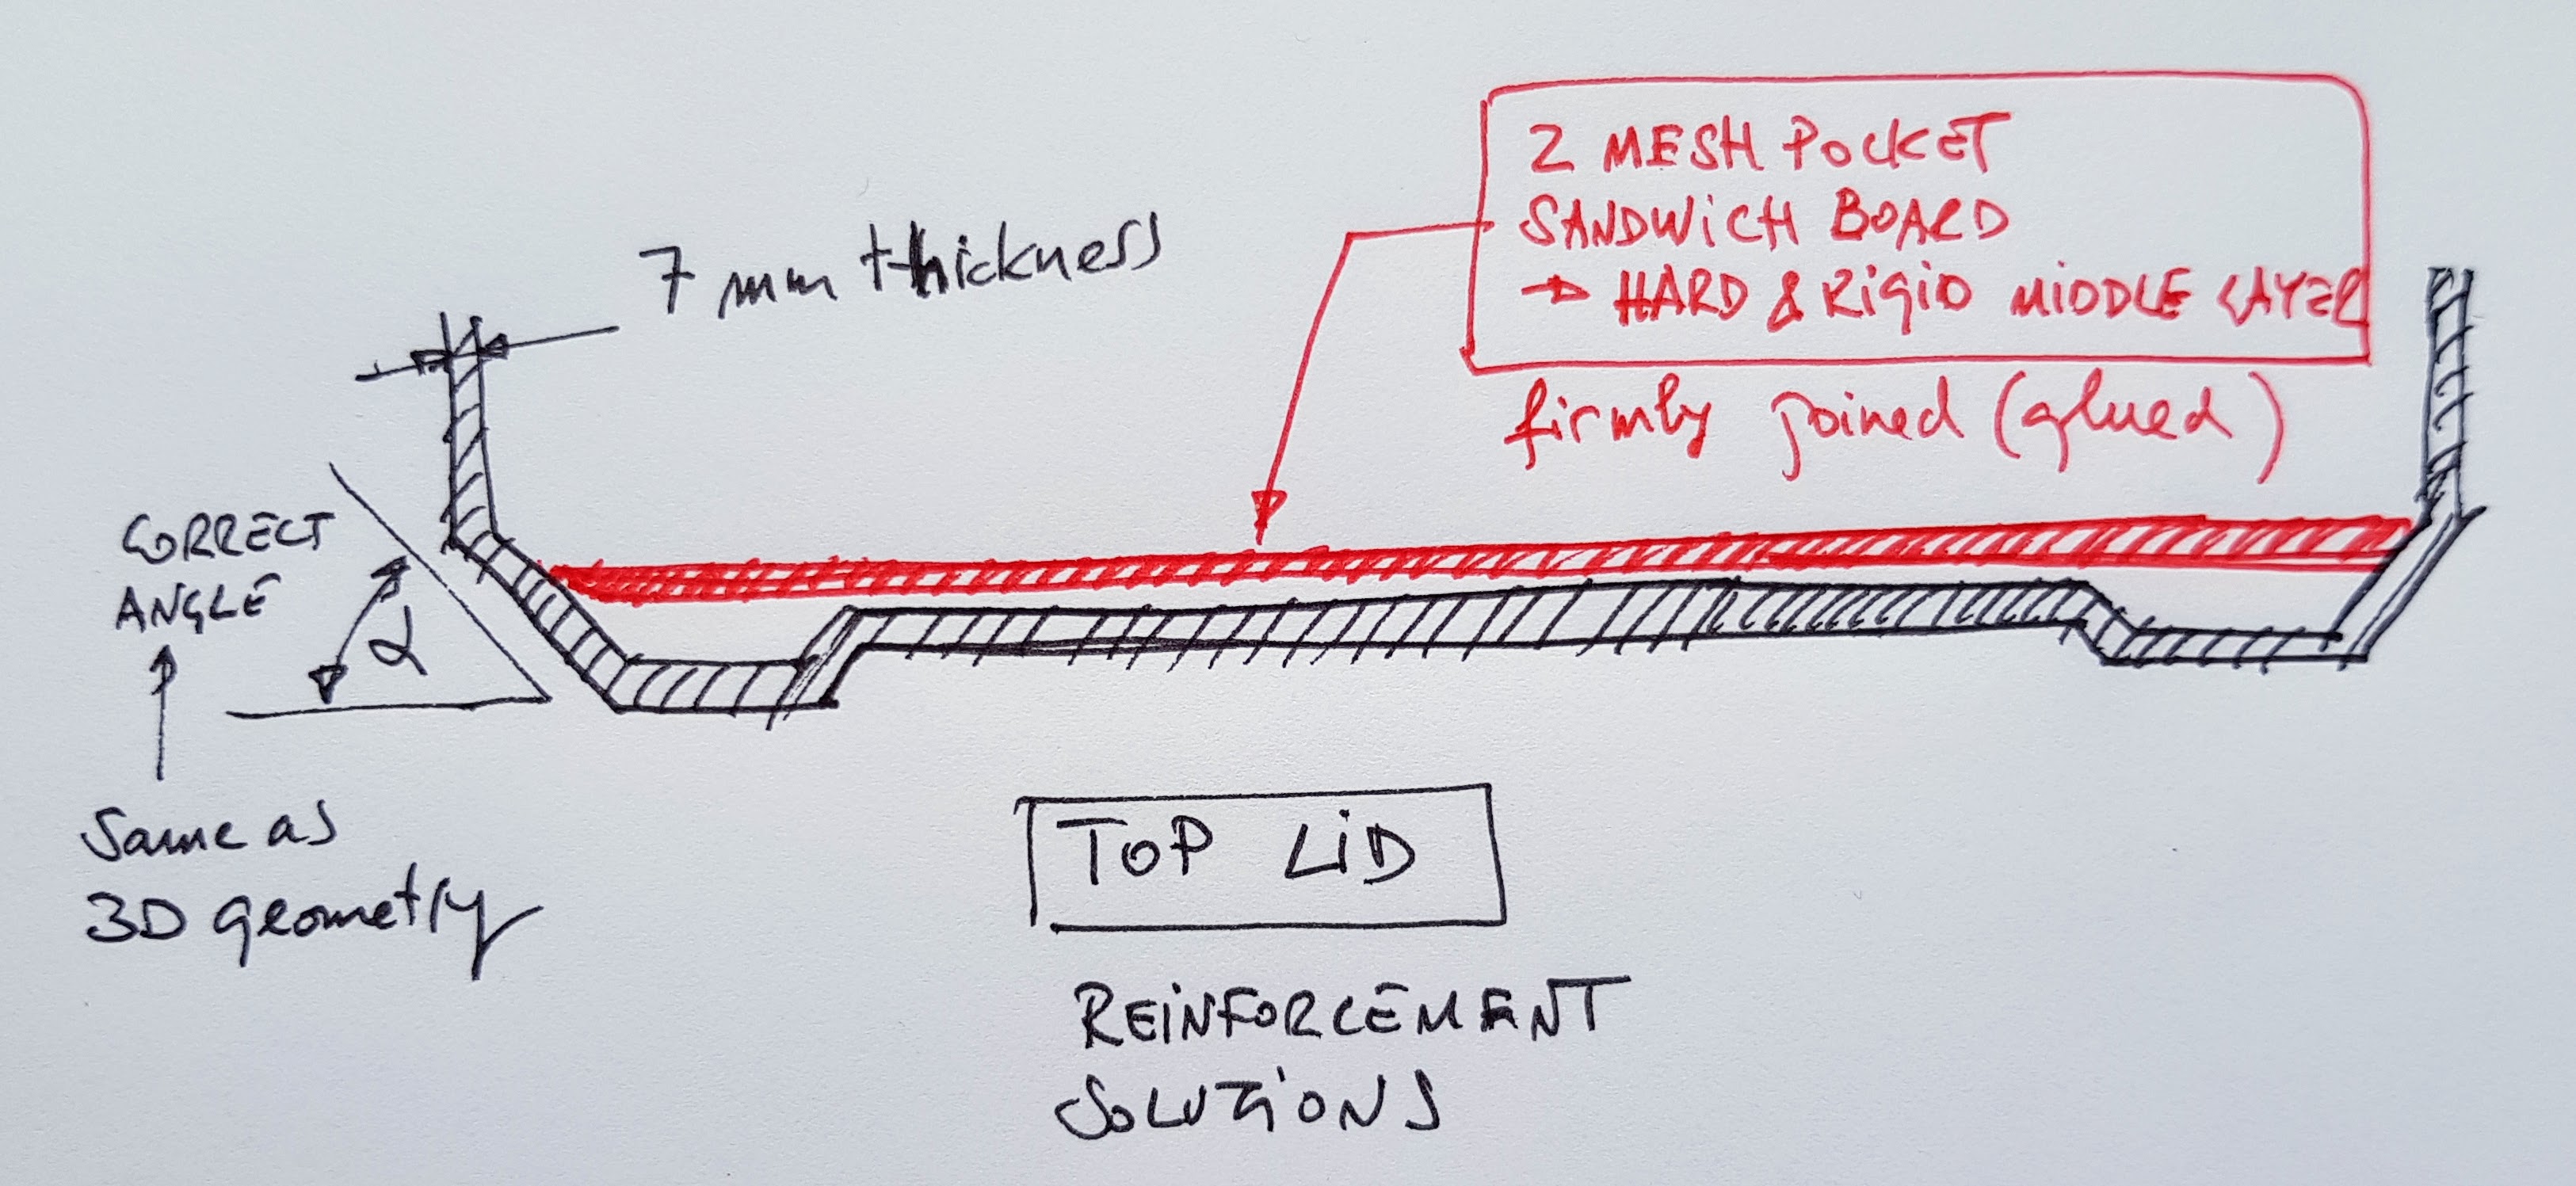 2 MESH POCKET
SANDWiCH BOARD
→ HARD & RiGiD MiDDLE LAYER
firmly joined (glued)
7 mm thickness
CORRECT
ANGLE
α
Same as
3D geometry
TOP LiD
REiNFORCEMENT
SOLUTiONS